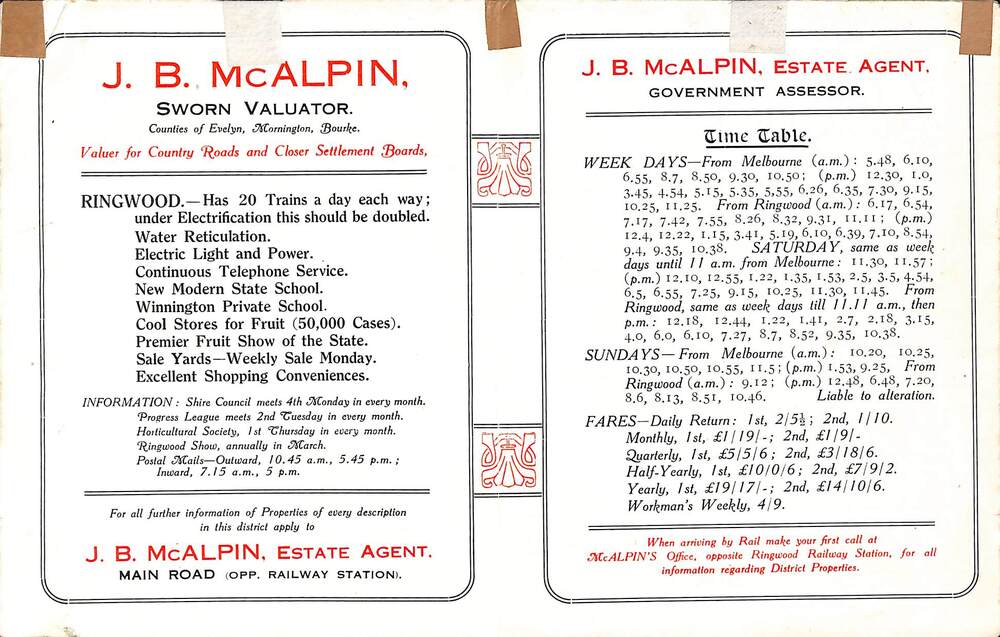 J. B. McALPIN,
SWORN VALUATOR.
Counties of Evelyn, Mornington, Bourke.
Valuer for Country Roads and Closer Settlement Boards,
RINGWOOD.—Has 20 Trains a day each way;
under Electrification this should be doubled.
Water Reticulation.
Electric Light and Power.
Continuous Telephone Service.
New Modern State School.
Winnington Private School.
Cool Stores for Fruit (50,000 Cases).
Premier Fruit Show of the State.
Sale Yards—Weekly Sale Monday.
Excellent Shopping Conveniences.
INFORMATION: Shire Council meets 4th Monday in every month.
Progress League meets 2nd Tuesday in every month.
Horticultural Society, 1st Thursday in every month.
Ringwood Show, annually in March.
Postal Mails—Outward, 10.45 a.m., 5.45 p.m.;
Inward, 7.15 a.m., 5 p.m.
For all further information of Properties of every description
in this district apply to
J. B. McALPIN, ESTATE AGENT.
MAIN ROAD (OPP. RAILWAY STATION).
J. B. McALPIN, ESTATE AGENT,
GOVERNMENT ASSESSOR.
Time Table.
WEEK DAYS—From Melbourne (a.m.): 5.48, 6.10,
6.55, 8.7, 8.50, 9.30, 10.50; (p.m.) 12.30, 1.0,
3.45, 4.54, 5.15, 5.35, 5,55, 6.26, 6.35, 7.30, 9.15,
10.25, 11.25. From Ringwood (a.m.): 6.17, 6.54,
7.17, 7.42, 7.55, 8.26, 8.32, 9.31, 11.11; (p.m.)
12.4, 12.22, 1.15, 3.41, 5.19, 6.10, 6.39, 7.10, 8.54,
9.4, 9.35, 10.38. SATURDAY, same as week
days until 11 a.m. from Melbourne: 11.30, 11.57;
(p.m.) 12.10, 12.55, 1.22, 1.35, 1.53, 2.5, 3.5, 4.54,
6.5, 6.55, 7.25, 9.15, 10.25, 11.30, 11.45. From
Ringwood, same as week days till 11.11 a.m., then
p.m.: 12.18, 12.44, 1.22, 1.41, 2.7, 2.18, 3.15,
4.0, 6.0, 6.10, 7.27, 8.7, 8.52, 9.35, 10.38.
SUNDAYS—From Melbourne (a.m.): 10.20, 10.25,
10.30, 10.50, 10.55, 11.5; (p.m.) 1.53, 9.25, From
Ringwood (a.m.): 9.12; (p.m.) 12.48, 6.48, 7.20,
8.6, 8.13, 8.51, 10.46. Liable to alteration.
FARES—Daily Return: 1st, 2/5½; 2nd, 1/10.
Monthly, 1st, £1/19/-; 2nd, £1/9/-
Quarterly, 1st, £5/5/6; 2nd, £3/18/6.
Half-Yearly, 1st, £10/0/6; 2nd, £7/9/2.
Yearly, 1st, £19/17/-; 2nd, £14/10/6.
Workman's Weekly, 4/9.
When arriving by Rail make your first call at
McALPIN'S Office, opposite Ringwood Railway Station, for all
information regarding District Properties.